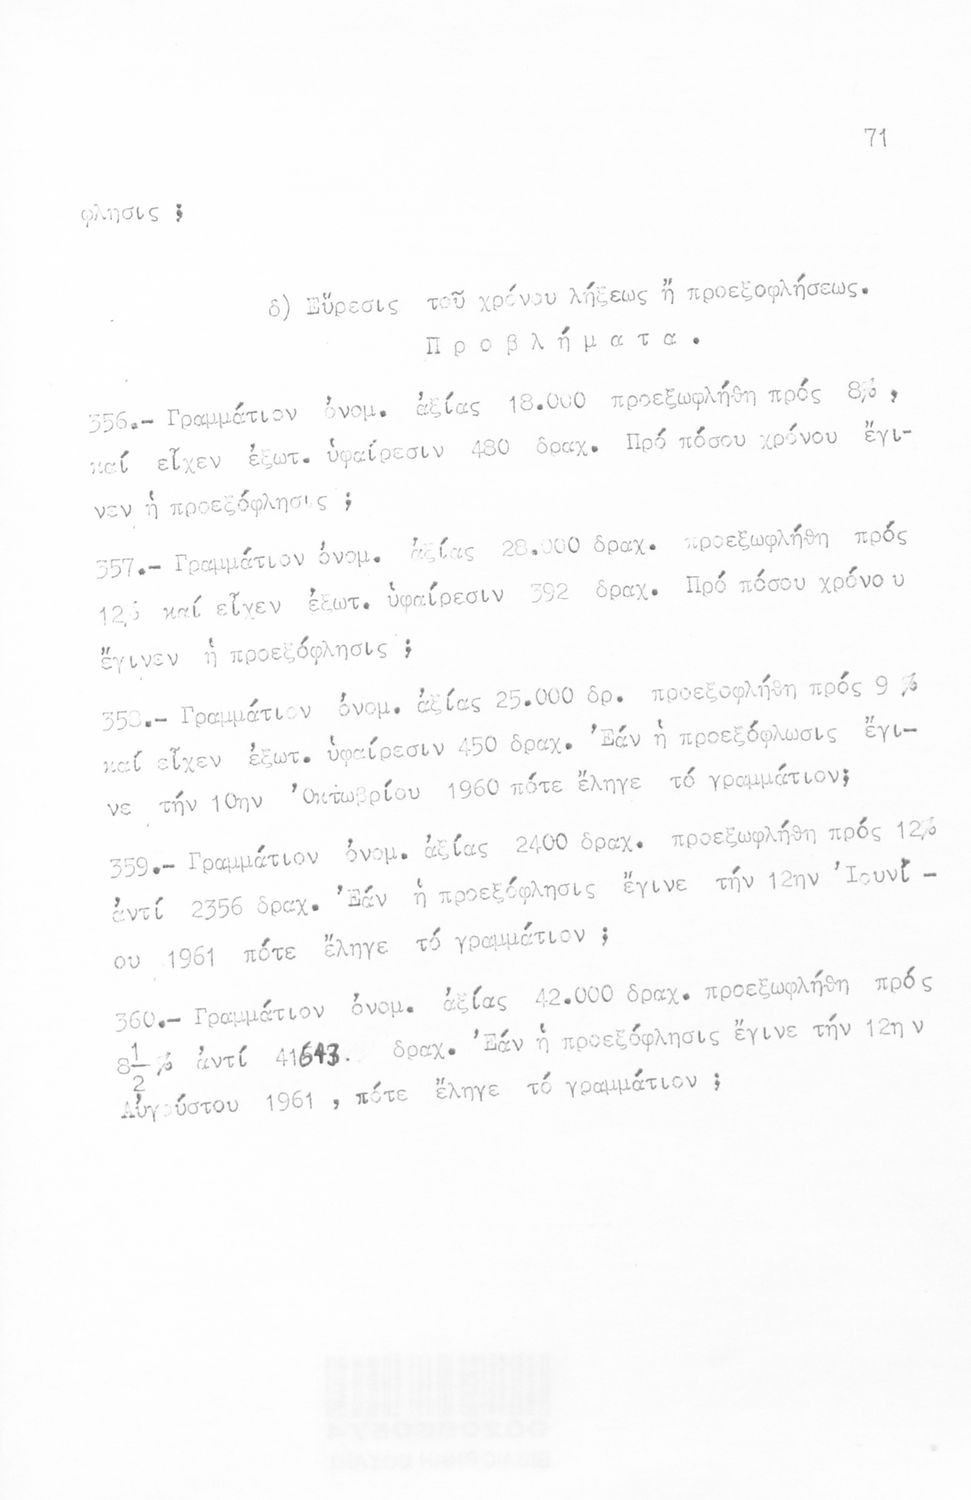 71
φλησις ;
δ) Εὕρεσις τοῦ χρόνου λήξεως ἤ προεξοφλήσεως.
Π ρ ο β λ ή μ α τ α .
356.- Γραμμάτιον ὀνομ. ἀξίας 18.000 προεξωφλήθη πρός 8% ,
καί εἶχεν ἐξωτ. ὑφαίρεσιν 480 δραχ. Πρό πόσου χρόνου ἔγι-
νεν ἡ προεξόφλησις ;
357.- Γραμμάτιον ὀνομ. ἀξίας 28.000 δραχ. προεξωφλήθη πρός
12% καί εἶχεν ἐξωτ. ὑφαίρεσιν 392 δραχ. Πρό πόσου χρόνου
ἔγινεν ἡ προεξόφλησις ;
358.- Γραμμάτιον ὀνομ. ἀξίας 25.000 δρ. προεξοφλήθη πρός 9 %
καί εἶχεν ἐξωτ. ὑφαίρεσιν 450 δραχ. Ἐάν ἡ προεξόφλωσις ἔγι-
νε τήν 10ην Ὀκτωβρίου 1960 πότε ἔληγε τό γραμμάτιον;
359.- Γραμμάτιον ὀνομ. ἀξίας 2400 δραχ. προεξωφλήθη πρός 12%
ἀντί 2356 δραχ. Ἐάν ἡ προεξόφλησις ἔγινε τήν 12ην Ἰουνί -
ου 1961 πότε ἔληγε τό γραμμάτιον ;
360.- Γραμμάτιον ὀνομ. ἀξίας 42.000 δραχ. προεξωφλήθη πρός
8 1/2 % ἀντί 41643. δραχ. Ἐάν ἡ προεξόφλησις ἔγινε τήν 12ην
Αὐγούστου 1961 , πότε ἔληγε τό γραμμάτιον ;